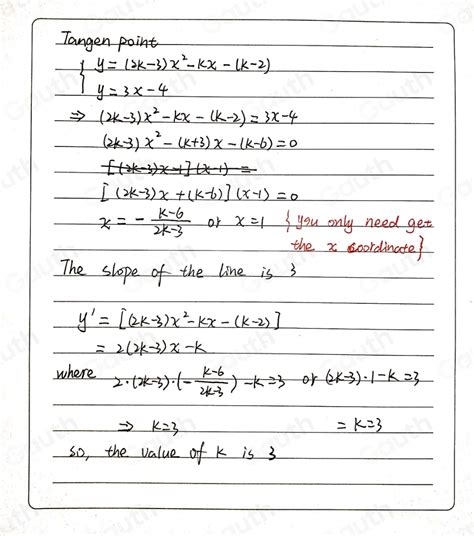 Tangen point
y = (2k-3)x² - kx - (k-2)
y = 3x - 4
⇒ (2k-3)x² - kx - (k-2) = 3x-4
(2k-3)x² - (k+3)x - (k-6) = 0
[(2k-3)x-1](x-1) =
[(2k-3)x + (k-6)](x-1) = 0
x = - k-6/2k-3 or x = 1 {you only need get
the x coordinate}
The slope of the line is 3
y' = [(2k-3)x² - kx - (k-2)]
= 2(2k-3)x - k
where 2·(2k-3)·(- k-6/2k-3) - k = 3 or (2k-3)·1 - k = 3
⇒ k=3 = k=3
so, the value of k is 3